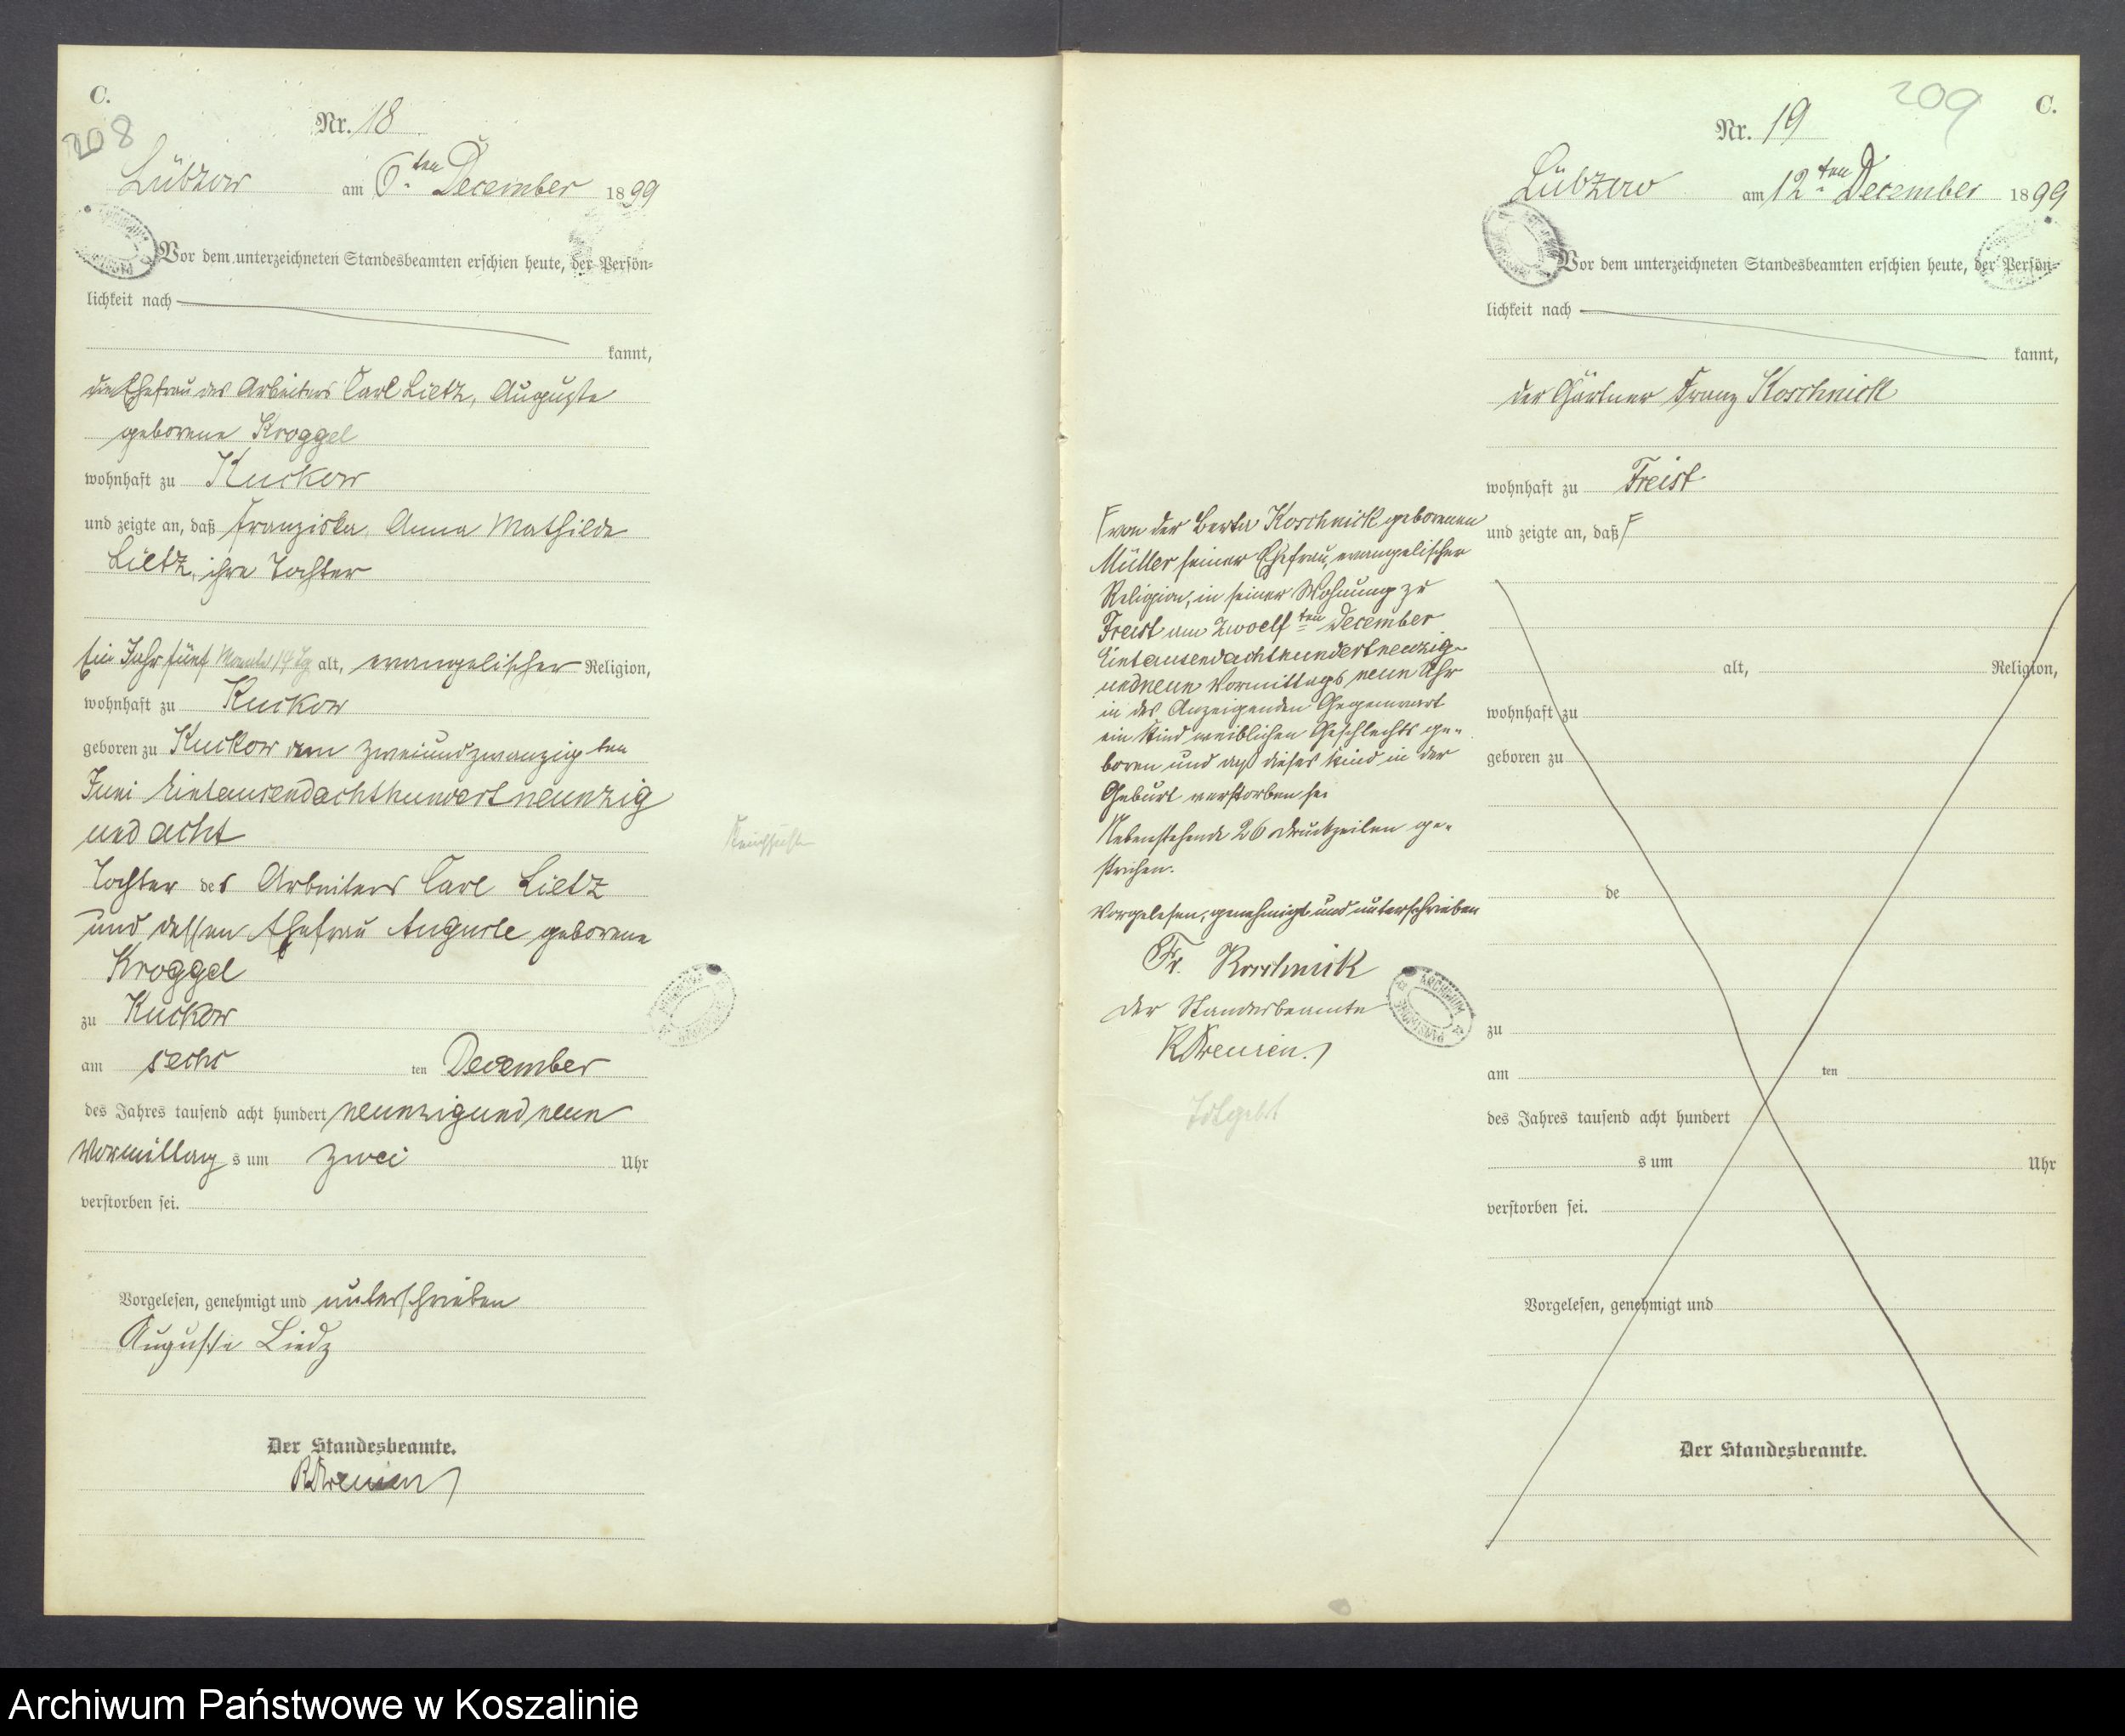 C.
208
Nr. 18
Lübzow am 6ten December 1899
Vor dem unterzeichneten Standesbeamten erschien heute, der Persön-
lichkeit nach
kannt,
die Ehefrau des Arbeiters Carl Lietz, Auguste
geborene Kroggel
wohnhaft zu Kuckow
und zeigte an, daß Franziska, Anna Mathilde
Lietz, ihre Tochter
Ein Jahr fünf Monate 14 Tg alt, evangelischer Religion,
wohnhaft zu Kuckow
geboren zu Kuckow am zweiundzwanzigten
Juni Eintausendachthundertneunzig
und acht
Tochter des Arbeiters Carl Lietz
und dessen Ehefrau Auguste geborene
Kroggel
zu Kuckow
am sechs ten December
des Jahres tausend acht hundert neunzigundneun
Vormittags um zwei Uhr
verstorben sei.
Vorgelesen, genehmigt und unterschrieben
Auguste Liedz
Der Standesbeamte.
209
C.
Nr. 19
Lübzow am 12ten December 1899
Vor dem unterzeichneten Standesbeamten erschien heute, der Persön-
lichkeit nach
kannt,
der Gärtner Franz Koschnick
wohnhaft zu Freist
und zeigte an, daß
von der Berta Koschnick geborenen
Müller seiner Ehefrau, evangelischer
Religion, in seiner Wohnung zu
Freist am zwoelften December
Eintausendachthundertneunzig-
undneun Vormittags neun Uhr
in des Anzeigenden Gegenwart
ein Kind weiblichen Geschlechts ge-
boren und daß dieses Kind in der
Geburt verstorben sei
Nebenstehende 26 Druckzeilen ge-
strichen.
Vorgelesen, genehmigt und unterschrieben
Fr. Koschnick
Der Standesbeamte
alt, Religion,
wohnhaft zu
geboren zu
de
zu
am ten
des Jahres tausend acht hundert
s um Uhr
verstorben sei.
Vorgelesen, genehmigt und
Der Standesbeamte.
Archiwum Państwowe w Koszalinie